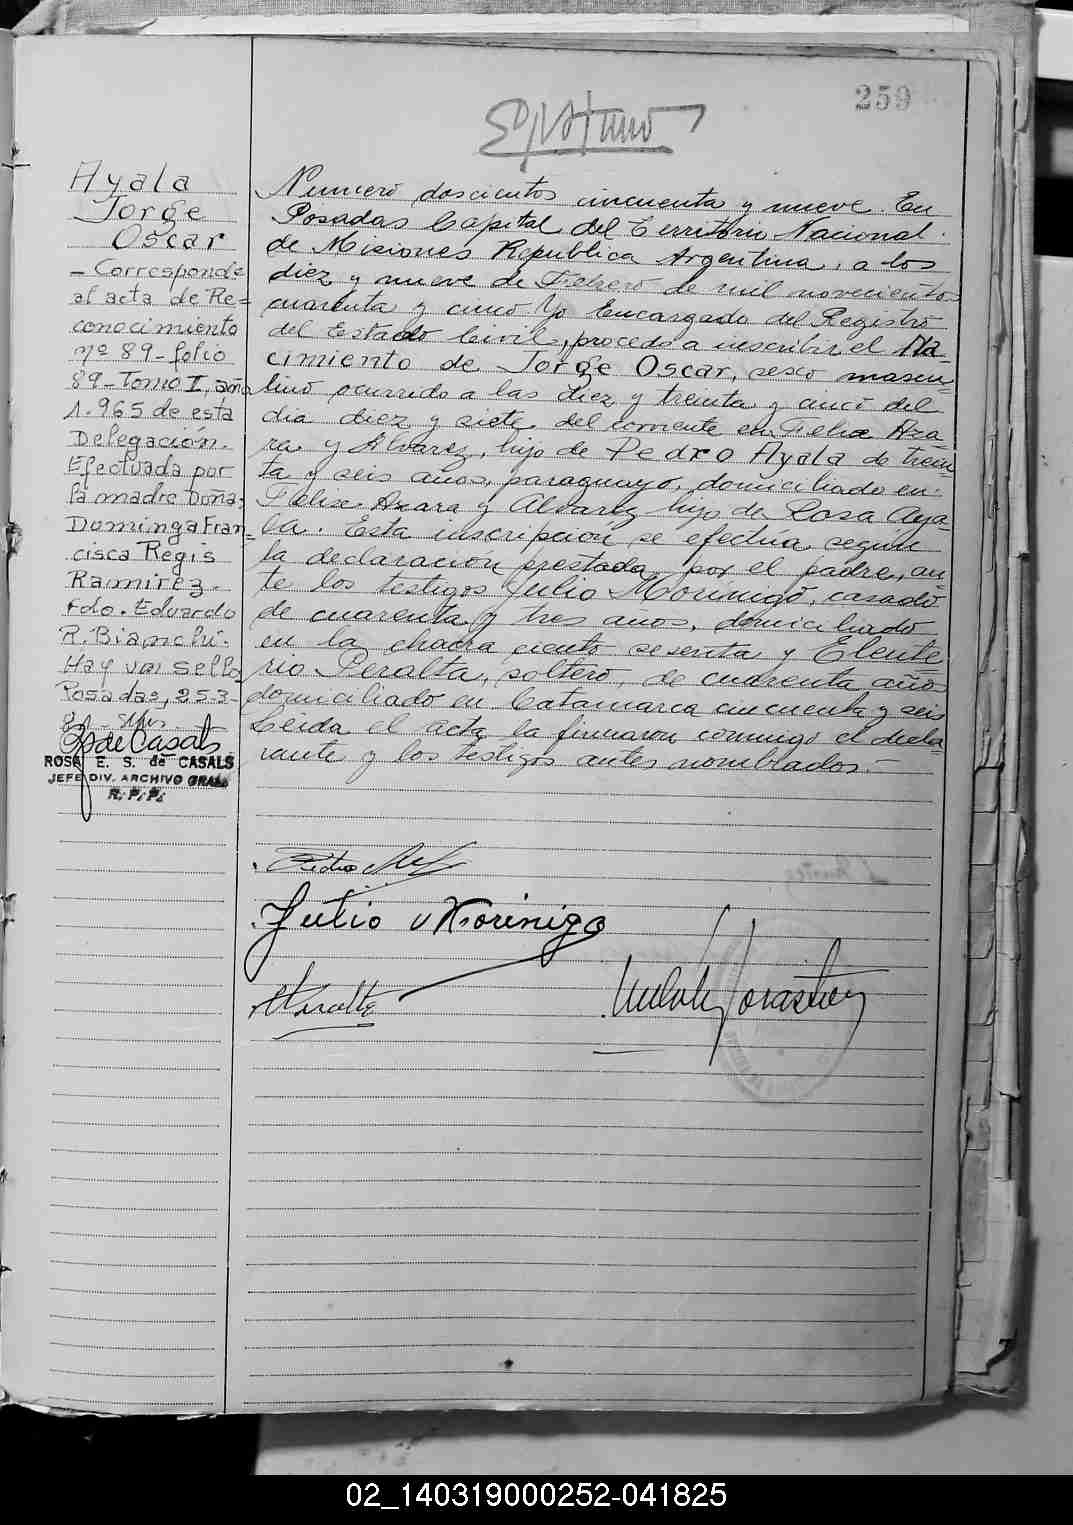 259
Ayala
Jorge
Oscar
- Corresponde
al acta de Re=
conocimiento
nº 89 - folio
89 - Tomo I, año
1.965 de esta
Delegación.
Efectuada por
la madre Doña;
Dominga Fran=
cisca Regis
Ramirez.
Fdo. Eduardo
R. Bianchi.
Hay un sello
Posadas, 25-3-
de Casals
ROSA E. S. de CASALS
JEFE DIV. ARCHIVO GRAL.
R. P. P.
Numero doscientos cincuenta y nueve. En
Posadas Capital del Territorio Nacional
de Misiones Republica Argentina, a los
diez y nueve de Febrero de mil novecientos
cuarenta y cinco Yo Encargado del Registro
del Estado Civil, procedo a inscribir el Na-
cimiento de Jorge Oscar, sexo mascu
lino ocurrido a las diez y treinta y cinco del
dia diez y siete del corriente en Felix Aza
ra y Alvarez, hijo de Pedro Ayala de trein
ta y seis años, paraguayo, domiciliado en
Felix Azara y Alvarez hijo de Rosa Aya-
la. Esta inscripción se efectua segun
la declaración prestada por el padre, an
te los testigos Julio Morinigo, casado
de cuarenta y tres años, domiciliado
en la chacra ciento sesenta y Eleute
rio Peralta, soltero, de cuarenta años
domiciliado en Catamarca cincuenta y seis
Leida el acta la firmaron conmigo el decla
rante y los testigos antes nombrados.-
Pedro
Julio Morinigo
Peralta
02_140319000252-041825